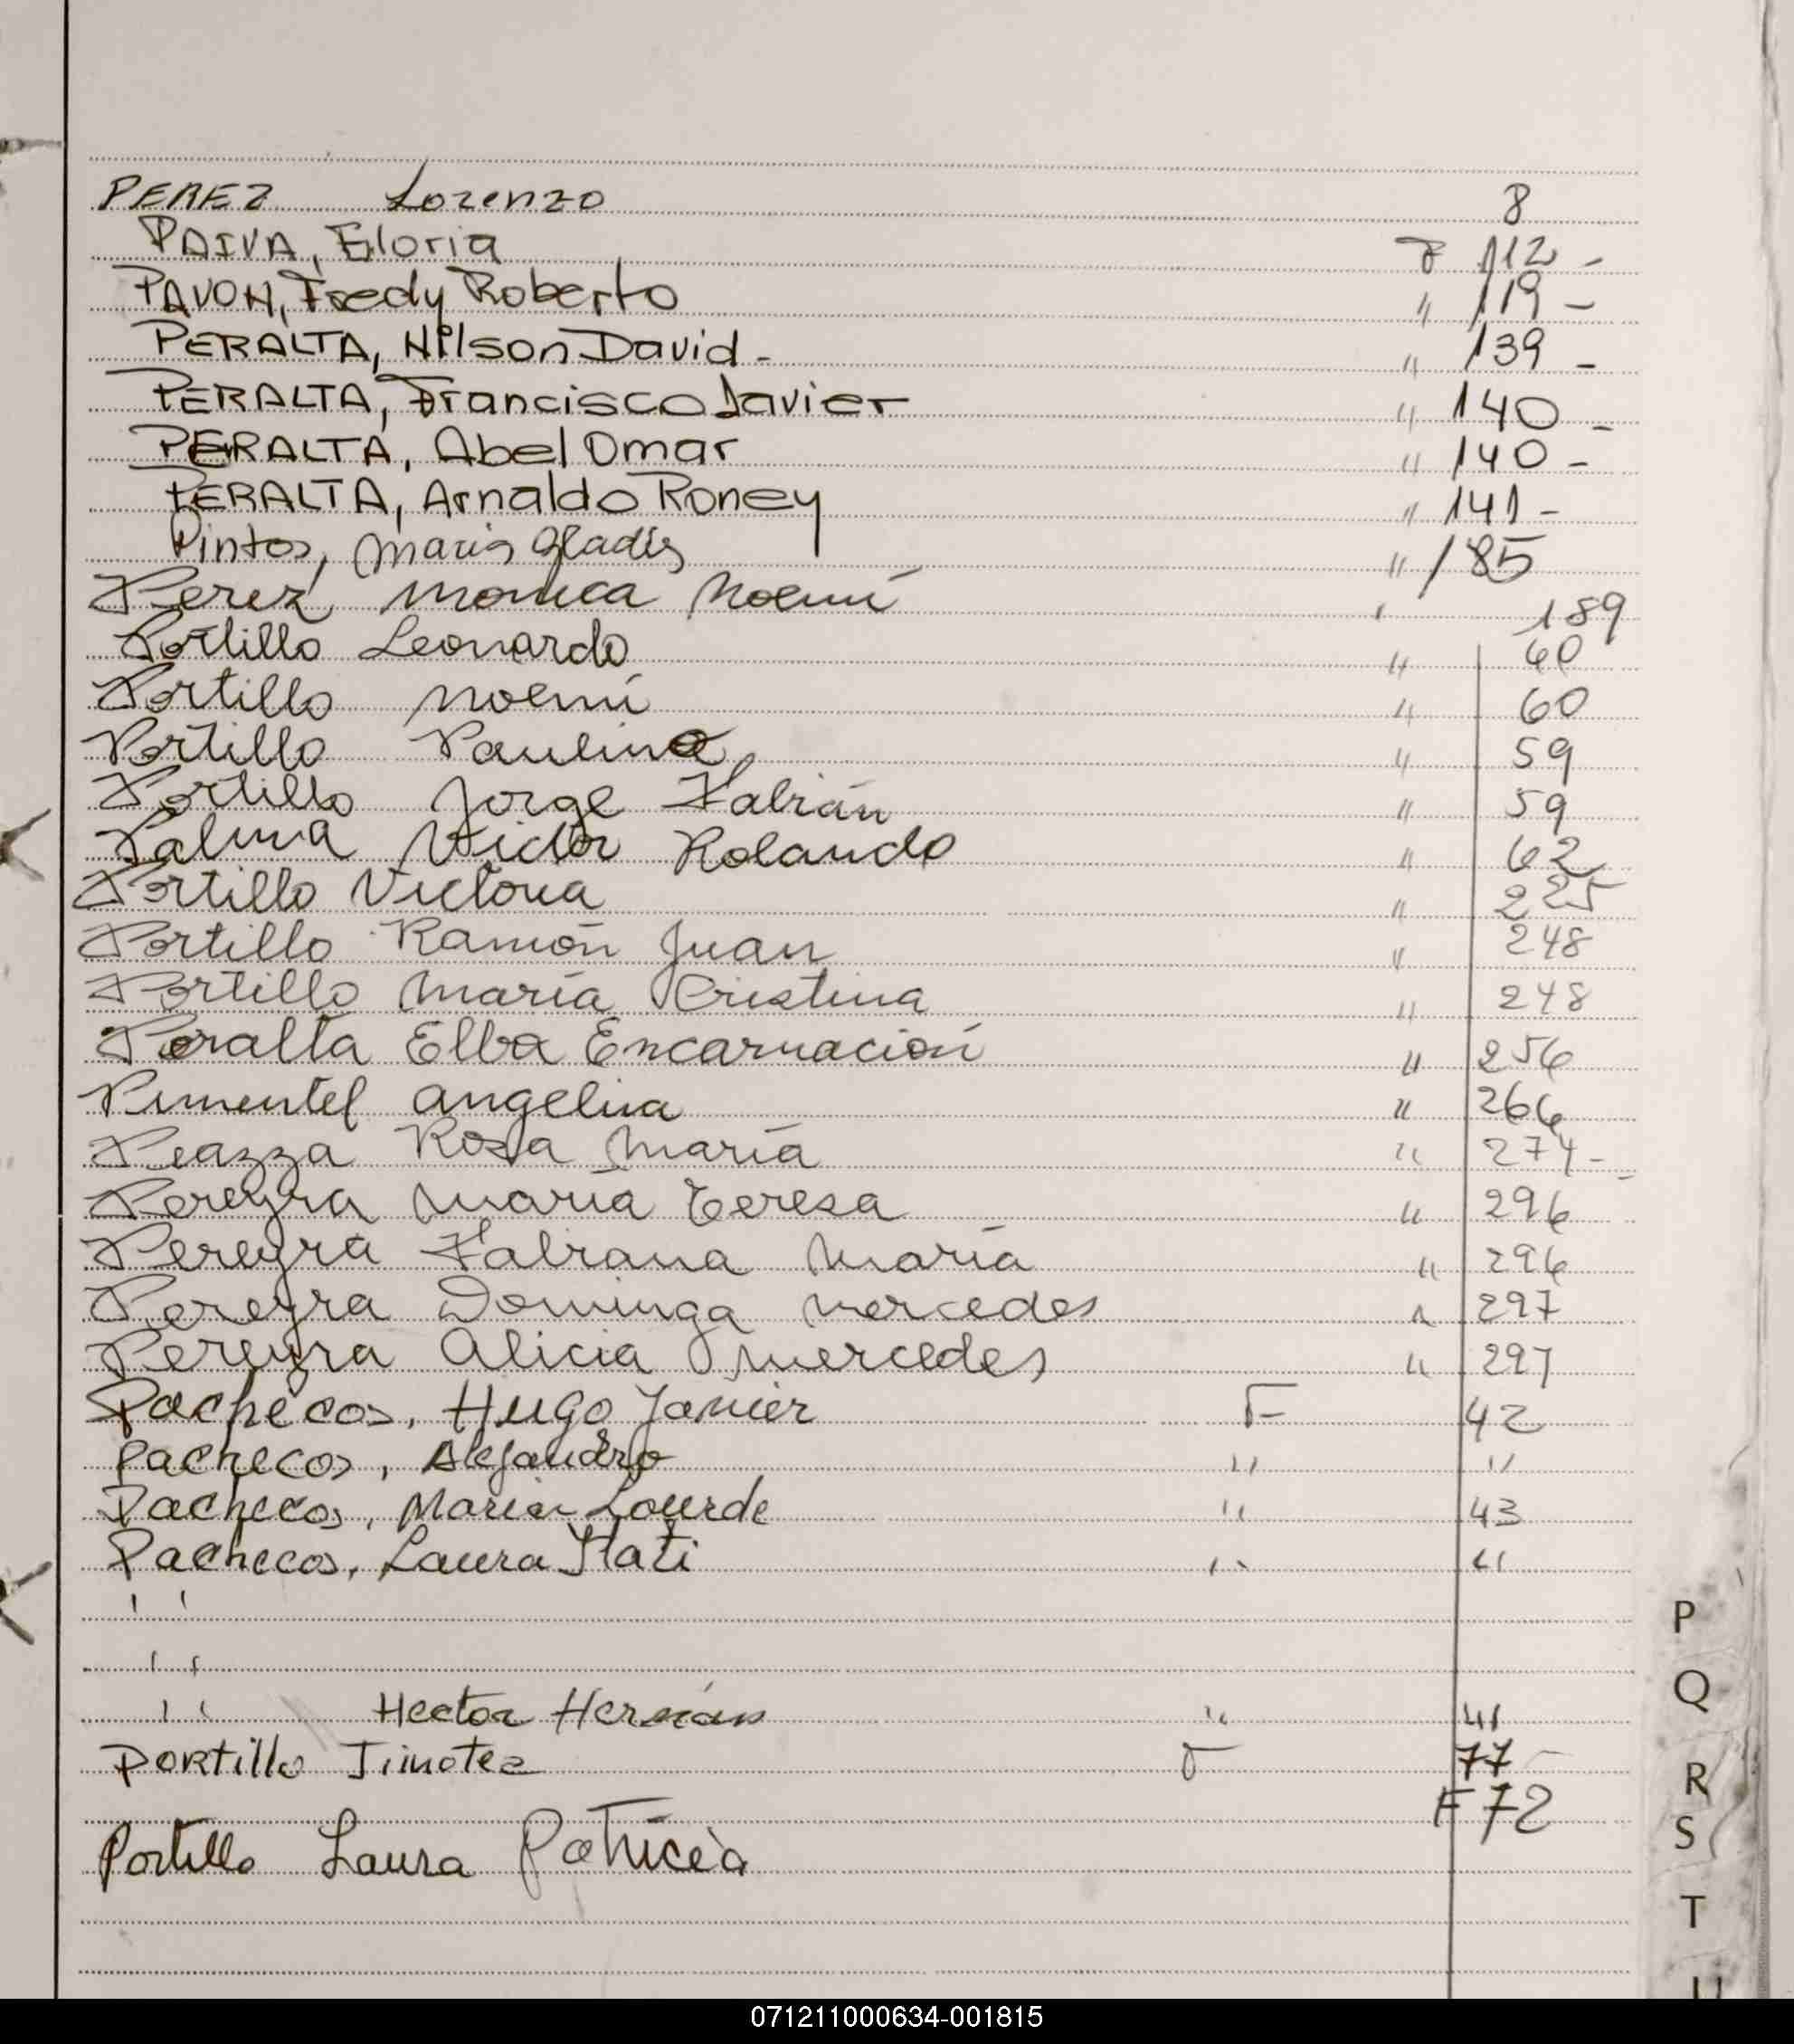 PEREZ Lorenzo 8
PAIVA, Gloria F 112 -
PAVON, Fredy Roberto " 119 -
PERALTA, Nilson David - " 139 -
PERALTA, Francisco Javier " 140 -
PERALTA, Abel Omar " 140 -
PERALTA, Arnaldo Roney " 141 -
Pintos, Maria Gladis " 185
Perez Monica Noemí " 189
Portillo Leonardo " 60
Portillo Noemí " 60
Portillo Paulina " 59
Portillo Jorge Fabián " 59
Palma Victor Rolando " 62
Portillo Victoria " 225
Portillo Ramón Juan " 248
Portillo María Cristina " 248
Peralta Elba Encarnación " 256
Pimentel Angelina " 266
Peazza Rosa María " 274 -
Pereyra María Teresa " 296
Pereyra Fabiana María " 296
Pereyra Dominga Mercedes " 297
Pereyra Alicia Mercedes " 297
Pachecos, Hugo Javier F 42
Pachecos, Alejandro " "
Pachecos, Maria Lourde " 43
Pachecos, Laura Itati " "
"
"
" Hector Hernán " 41
Portillo Timotea F 77 -
F 72
Portillo Laura Patricia
P
Q
R
S
T
U
071211000634-001815